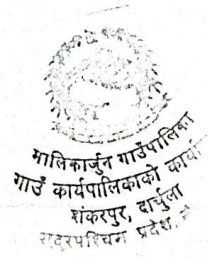 मालिकार्जुन गाउँपालिका
गाउँ कार्यपालिकाको कार्या
शंकरपुर, दार्चुला
सुदूरपश्चिम प्रदेश,